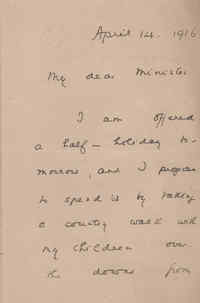 April 14. 1916
My dear Minister
I am offered
a half-holiday to-
morrow, and I propose
to spend it by taking
a country walk with
my children over
the downs from